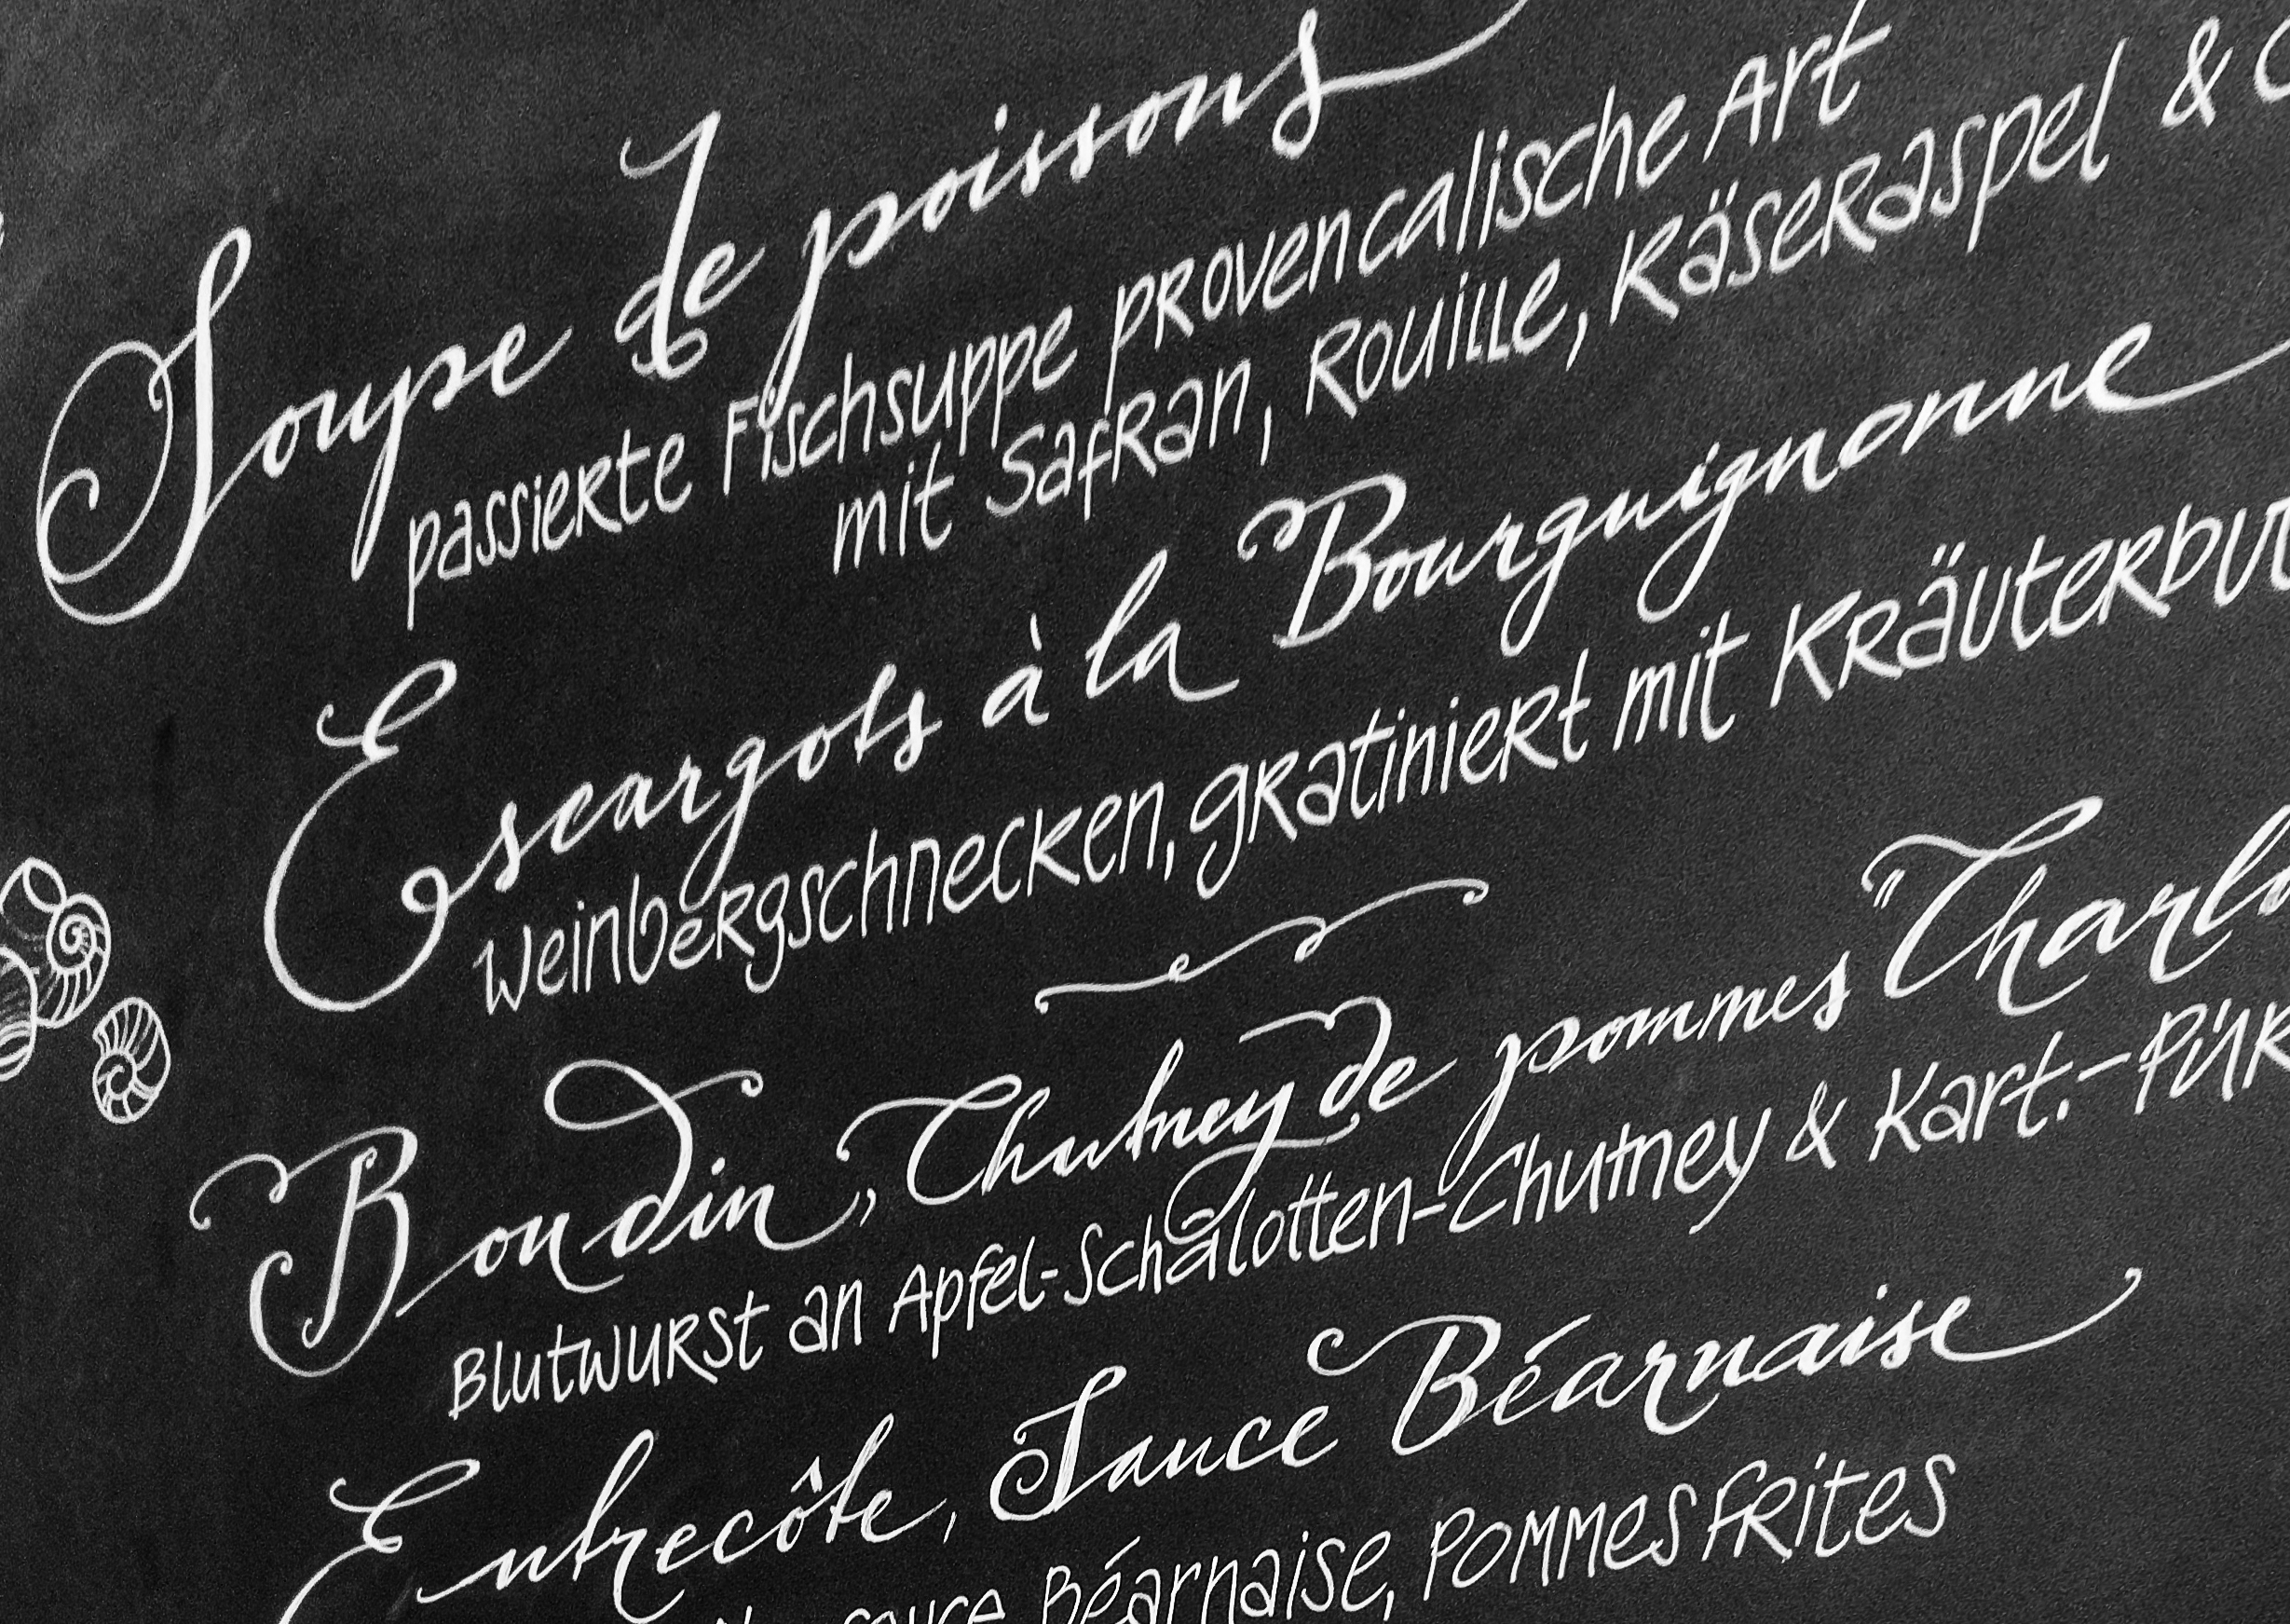 Soupe de poissons
passierte Fischsuppe provencalische Art
mit Safran, Rouille, Käseraspel &
Escargots à la Bourguignonne
Weinbergschnecken, gratiniert mit
Boudin, Chutney de pommes
Blutwurst an Apfel-Schalotten-Chutney & Kart.-
Entrecôte, Sauce Béarnaise
Béarnaise, Pommes Frites